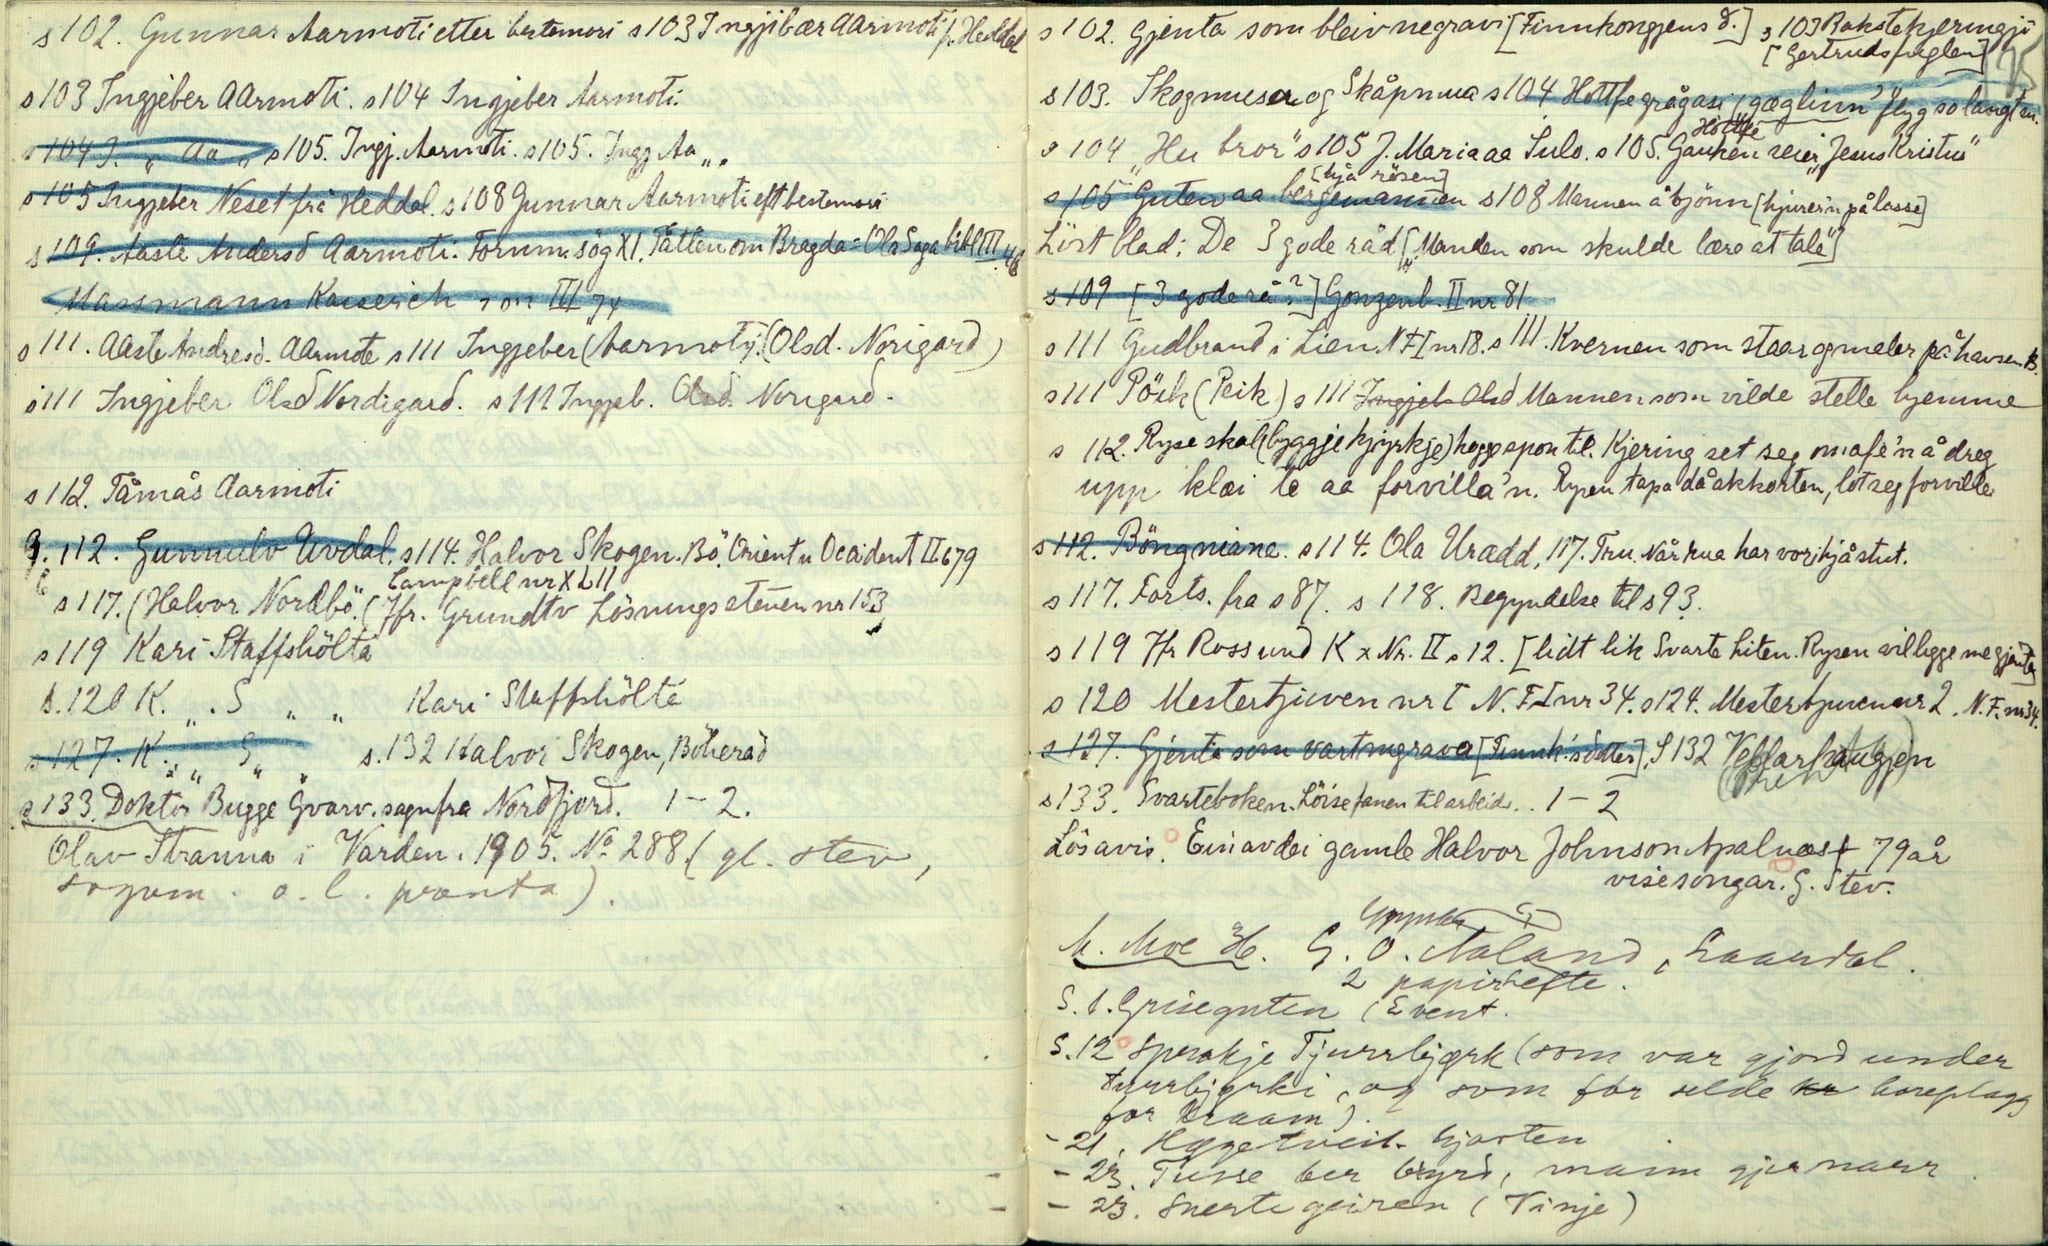 s 102. Gunnar Aarmoti etter bestemori s 103 Ingjibær Aarmoti f. Heddal
s 103 Ingjeber Aarmoti. s 104 Ingjeber Aarmoti.
s 104 I. „ Aa „ s 105. Ingj. Aarmoti. s 105. Ingj Aa „.
s 105 Ingjeber Neset frå Heddal. s 108 Gunnar Aarmoti eft bestemori
s 109. Aaste Andersd Aarmoti. Fornm. sög XI. Tåtten om Bragda-Ola Saga bibl III. 46
Massmann Kaiserch III 74
s 111. Aaste Andresd. Aarmote s 111 Ingjeber (Aarmoty. (Olsd. Norigard)
s 111 Ingjeber Olsd Nordigard. s 112 Ingjeb. Olsd. Norigard.
s 112. Tåmås Aarmoti
s 112. Gunnulv Uvdal. s 114. Halvor Skogen. Bö. Orient u Occident II 679
Campbell nr XLII
s 117. (Halvor Nordbö. (Jfr. Grundtv Lösningsstenen nr 153
s 119 Kari Staffshöltå
s. 120 K. „ . S „ „ Kari Staffshöltå
s 127. K. „ S „ „ s. 132 Halvor Skogen, Böherad
s 133. Doktor Bugge Gvarv. sagn fra Nordfjord. 1-2.
Olav Stranna i Varden. 1905. No 288. (gl. stev,
sogum. o. l. prenta).
s 102. Gjenta som bleiv negravi [Finnkongjens d.] s 103 Bakstekjeringji
[Gertrudsfuglen] 75
s 103. Skogmusa og Skåpmusa s 104 Höttfe grågasi (gæglinn" flyg so langt en.
Höttfe
s 104 „Hu bror" s 105 J. Maria aa Sulo. s 105. Gauken seier „Jesus Kristus"
[hjå risen]
s 105 Guten aa bergemannen s 108 Mannen å björnn [kjurein på lasse]
Löst blad: De 3 gode råd [„Manden som skulde lære at tale"]
s 109 [3 gode rå?] Gonzenb. II nr 81
s 111 Gudbrand i Lien N F I nr 18. s 111. Kvernen som staar og maler på havsen b.
s 111 Pöik (Peik) s 111 Ingjeb Olsd Mannen som vilde stelle hjemme
s 112. Ryse skal (byggje kjyrkje) hogge spon til. Kjering set seg omafe'n å dreg
upp klæi te aa forvilla'n. Rysen tapa då akkorten, lot seg forville
s 112. Böngniane. s 114. Ola Urædd, 117. Tru. Når kua har vori hjå stut.
s 117. Forts. fra s 87. s 118. Begyndelse til s 93.
s 119 Jfr Rossund K x Nr. II s 12. [lidt lik Svarte hiten. Rysen vil ligge me gjenta]
s 120 Mestertjuven nr I N. F I nr 34. s 124. Mestertjuven nr 2. N. F. nr 34.
s 127. Gjenta som vart ngrava [Finnk.s dotter]. S 132 Vettarhaugjen
s 133. Svarteboken. Löise fanen til arbeid. . 1-2
Lösavis. Ein av dei gamle Halvor Johnson Apalnæs † 79 år
visesongar. G. Stev.
M. Moe H. G. O. Aaland, Laardal.
2 papirhefte.
S. 1. Griseguten (Event.
S. 12 Sprakje Tjurrbjørk (som var gjord under
turrbjørki, og som får selde kr horeplagg
for kraam).
- 21. Hægetveit-hjorten
- 23. Tusse ber byrd, mann gjer narr.
- 23. Snerte geiren (Vinje)